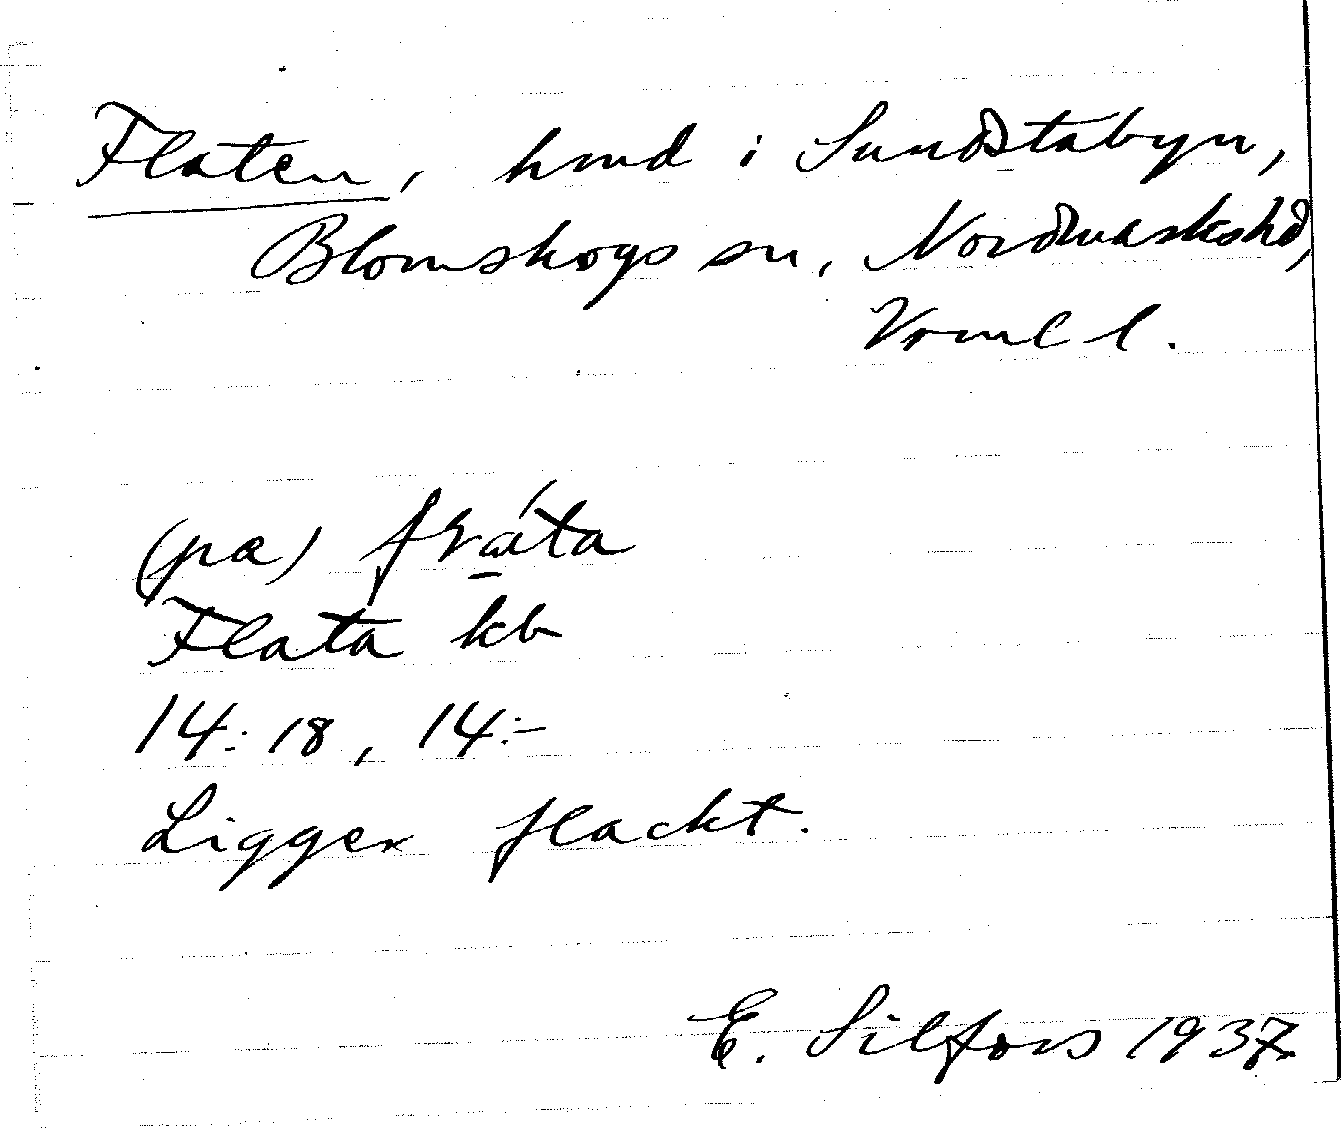 Flaten, hmd i Sundstabyn,
Blomskogs sn, Nordmarkshd,
Vrml l.
(pa)
Flata kb
14:18, 14:-
Ligger flackt.
E. Silfors 1937.